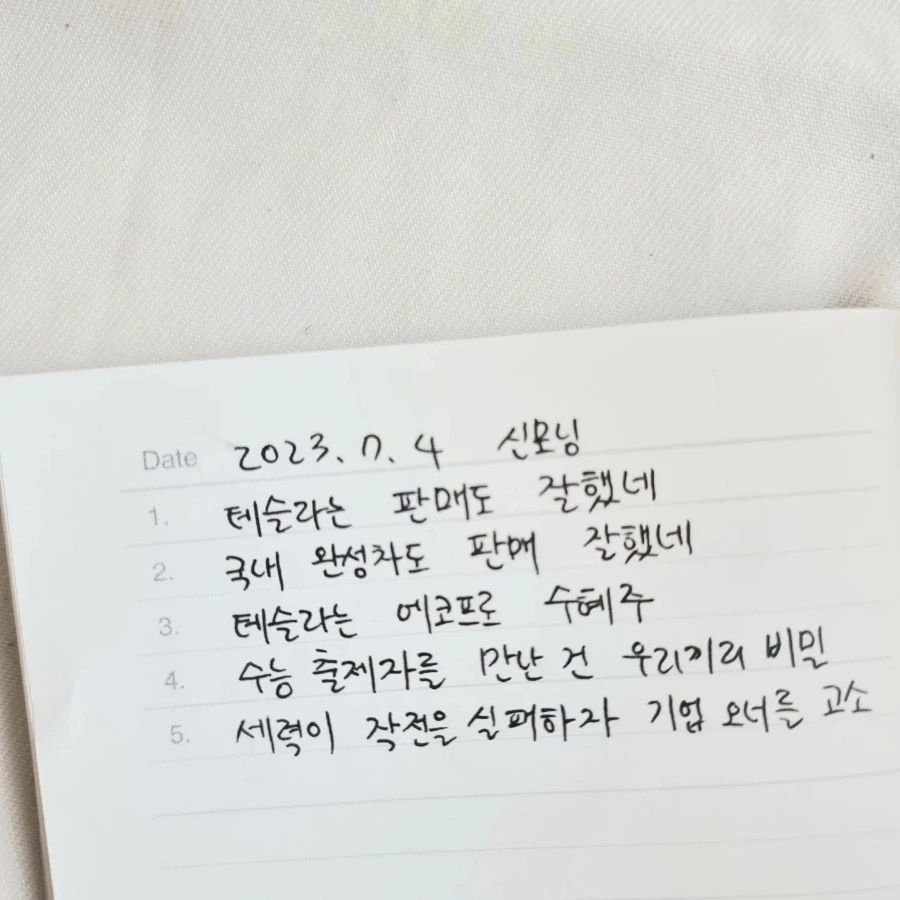 Date 2023. 7. 4 신모닝
1. 테슬라는 판매도 잘했네
2. 국내 완성차도 판매 잘했네
3. 테슬라는 에코프로 수혜주
4. 수능 출제자를 만난 건 우리끼리 비밀
5. 세력이 작전을 실패하자 기업 오너를 고소